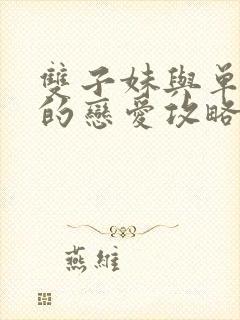 雙子妹與單
的戀愛攻略
燕維